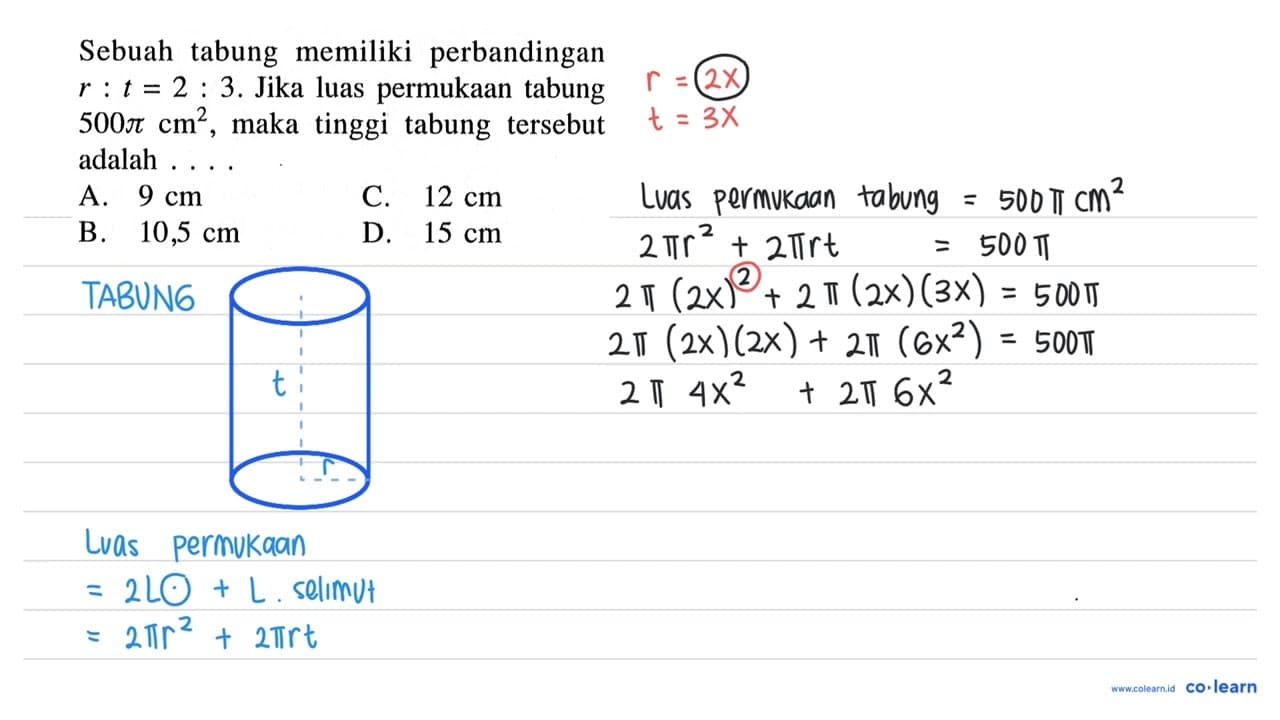 Sebuah tabung memiliki perbandingan
r : t = 2 : 3. Jika luas permukaan tabung
500π cm², maka tinggi tabung tersebut
adalah . . . .
A. 9 cm C. 12 cm
B. 10,5 cm D. 15 cm
r = 2x
t = 3x
Luas permukaan tabung = 500π cm²
2πr² + 2πrt = 500π
2π (2x)² + 2π (2x)(3x) = 500π
2π (2x)(2x) + 2π (6x²) = 500π
2π 4x² + 2π 6x²
TABUNG
t
r
Luas permukaan
= 2L⊙ + L. selimut
= 2πr² + 2πrt
www.colearn.id co·learn